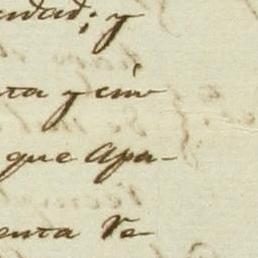 dad; y
ta y cin
que apa-
enta Re